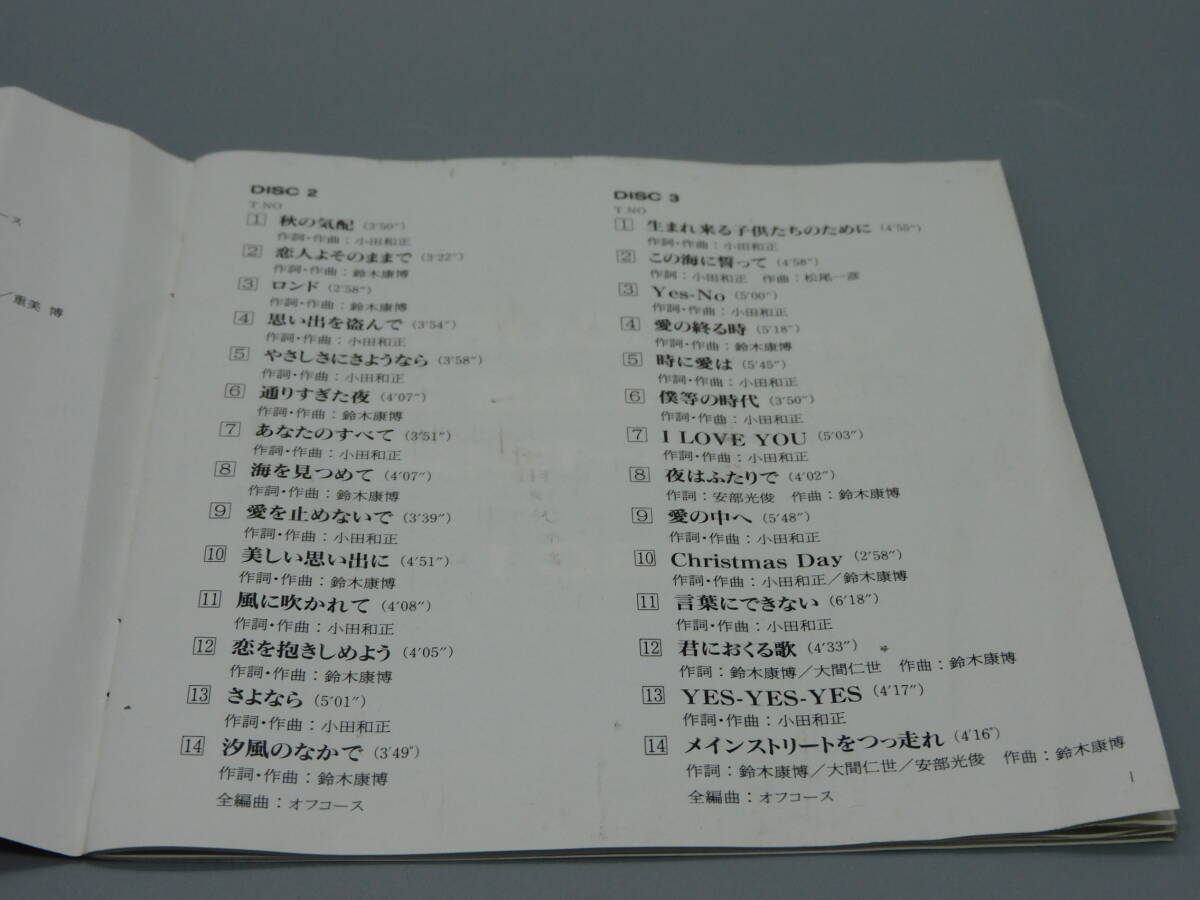 ース
／重美 博
DISC 2
T.NO
1 秋の気配 (3′50″)
作詞・作曲：小田和正
2 恋人よそのままで (3′22″)
作詞・作曲：鈴木康博
3 ロンド (2′58″)
作詞・作曲：鈴木康博
4 思い出を盗んで (3′54″)
作詞・作曲：小田和正
5 やさしさにさようなら (3′58″)
作詞・作曲：小田和正
6 通りすぎた夜 (4′07″)
作詞・作曲：鈴木康博
7 あなたのすべて (3′51″)
作詞・作曲：小田和正
8 海を見つめて (4′07″)
作詞・作曲：鈴木康博
9 愛を止めないで (3′39″)
作詞・作曲：小田和正
10 美しい思い出に (4′51″)
作詞・作曲：鈴木康博
11 風に吹かれて (4′08″)
作詞・作曲：小田和正
12 恋を抱きしめよう (4′05″)
作詞・作曲：鈴木康博
13 さよなら (5′01″)
作詞・作曲：小田和正
14 汐風のなかで (3′49″)
作詞・作曲：鈴木康博
全編曲：オフコース
DISC 3
T.NO
1 生まれ来る子供たちのために (4′55″)
作詞・作曲：小田和正
2 この海に誓って (4′58″)
作詞：小田和正 作曲：松尾一彦
3 Yes-No (5′00″)
作詞・作曲：小田和正
4 愛の終る時 (5′18″)
作詞・作曲：鈴木康博
5 時に愛は (5′45″)
作詞・作曲：小田和正
6 僕等の時代 (3′50″)
作詞・作曲：小田和正
7 I LOVE YOU (5′03″)
作詞・作曲：小田和正
8 夜はふたりで (4′02″)
作詞：安部光俊 作曲：鈴木康博
9 愛の中へ (5′48″)
作詞・作曲：小田和正
10 Christmas Day (2′58″)
作詞・作曲：小田和正／鈴木康博
11 言葉にできない (6′18″)
作詞・作曲：小田和正
12 君におくる歌 (4′33″)
作詞：鈴木康博／大間仁世 作曲：鈴木康博
13 YES-YES-YES (4′17″)
作詞・作曲：小田和正
14 メインストリートをつっ走れ (4′16″)
作詞：鈴木康博／大間仁世／安部光俊 作曲：鈴木康博
全編曲：オフコース
1